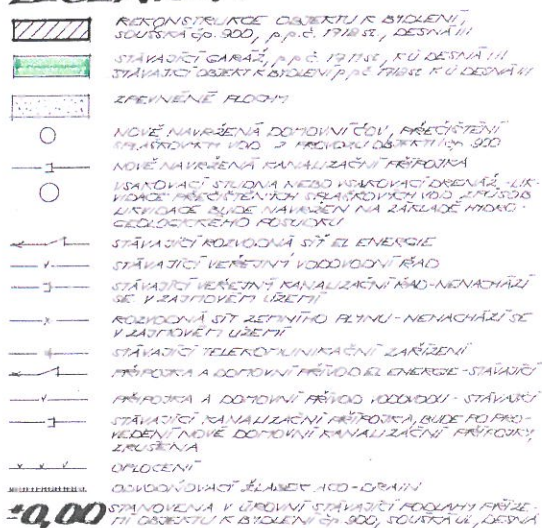 REKONSTRUKCE OBJEKTU K BYDLENÍ,
SOUŠSKÁ čp. 900, p.p.č. 1718 st., DESNÁ III
STÁVAJÍCÍ GARÁŽ, p.p.č. 1711 st., K.Ú DESNÁ III
STÁVAJÍCÍ OBJEKT K BYDLENÍ p.p.č. 1718 st. K.Ú DESNÁ III
ZPEVNĚNÉ PLOCHY
NOVĚ NAVRŽENÁ DOMOVNÍ ČOV, PŘEČIŠTĚNÍ
SPLAŠKOVÝCH VOD Z PROVOZU OBJEKTU čp. 900
NOVĚ NAVRŽENÁ KANALIZAČNÍ PŘÍPOJKA
VSAKOVACÍ STUDNA NEBO VSAKOVACÍ DRENÁŽ - LIK-
VIDACE PŘEČIŠTĚNÝCH SPLAŠKOVÝCH VOD, ZPŮSOB
LIKVIDACE BUDE NAVRŽEN NA ZÁKLADĚ HYDRO-
GEOLOGICKÉHO POSUDKU
STÁVAJÍCÍ ROZVODNÁ SÍŤ EL ENERGIE
STÁVAJÍCÍ VEŘEJNÝ VODOVODNÍ ŘAD
STÁVAJÍCÍ VEŘEJNÝ KANALIZAČNÍ ŘAD - NENACHÁZÍ
SE V ZÁJMOVÉM ÚZEMÍ
ROZVODNÁ SÍŤ ZEMNÍHO PLYNU - NENACHÁZÍ SE
V ZÁJMOVÉM ÚZEMÍ
STÁVAJÍCÍ TELEKOMUNIKAČNÍ ZAŘÍZENÍ
PŘÍPOJKA A DOMOVNÍ PŘÍVOD EL ENERGIE - STÁVAJÍCÍ
PŘÍPOJKA A DOMOVNÍ PŘÍVOD VODOVODU - STÁVAJÍCÍ
STÁVAJÍCÍ KANALIZAČNÍ PŘÍPOJKA, BUDE PO PRO-
VEDENÍ NOVÉ DOMOVNÍ KANALIZAČNÍ PŘÍPOJKY
ZRUŠENA
OPLOCENÍ
ODVODŇOVACÍ ŽLÁBEK ACO-DRAIN
±0,00 STANOVENA V ÚROVNI STÁVAJÍCÍ PODLAHY PŘÍZE-
MÍ OBJEKTU K BYDLENÍ čp. 900, SOUŠSKÁ UL, DESNÁ